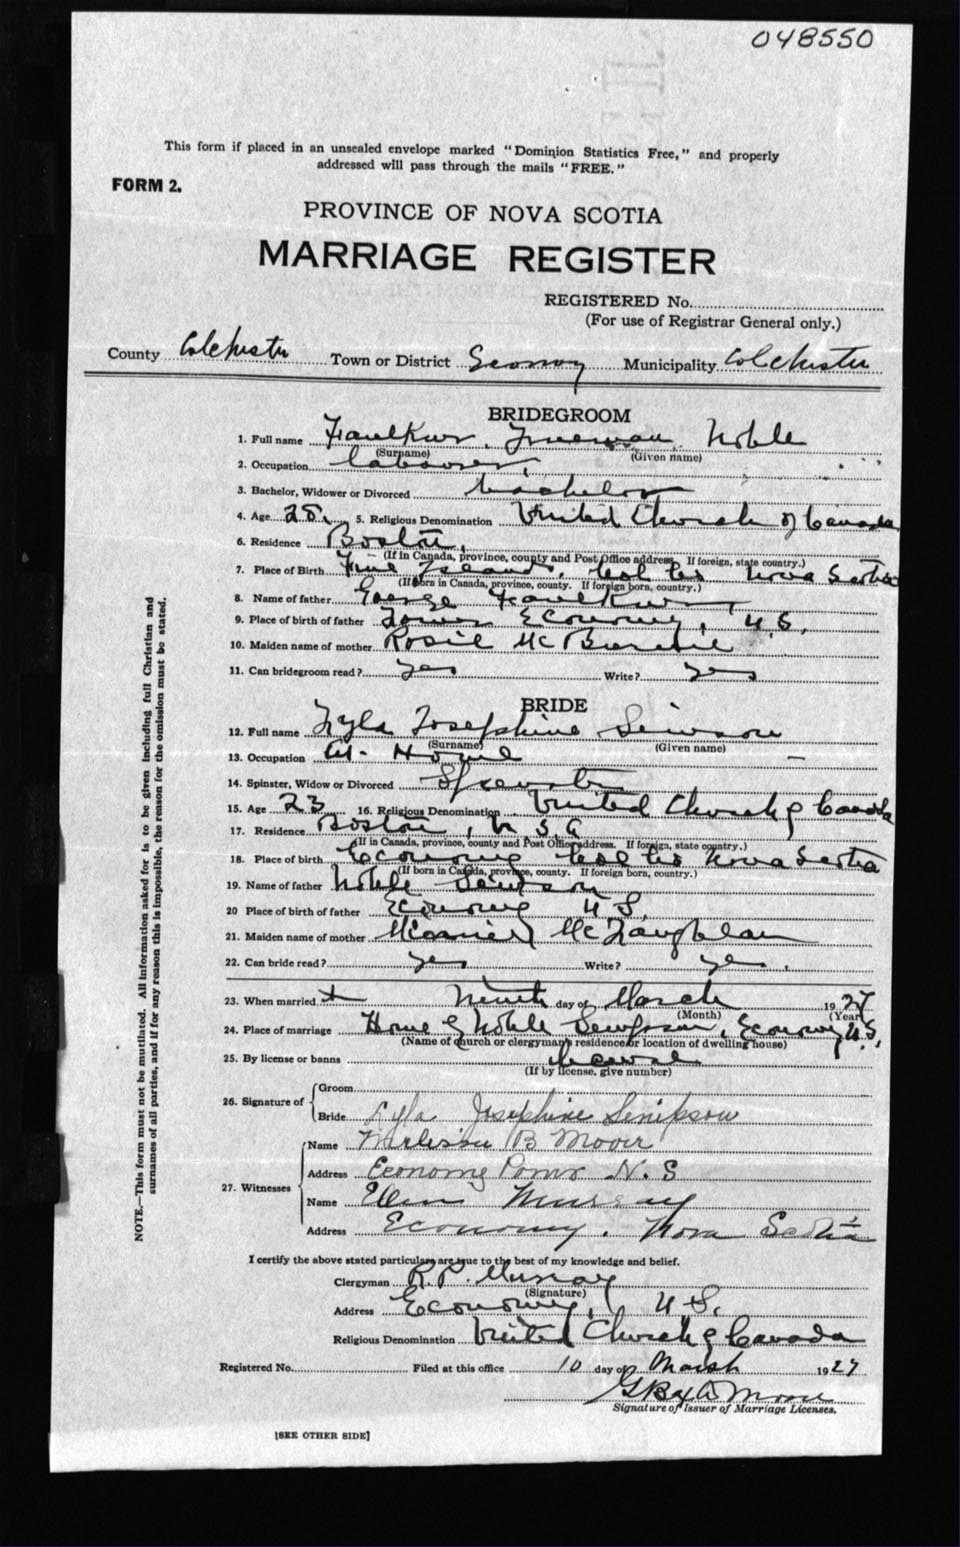 048550
This form if placed in an unsealed envelope marked "Dominion Statistics Free," and properly
addressed will pass through the mails "FREE."
FORM 2.
PROVINCE OF NOVA SCOTIA
MARRIAGE REGISTER
REGISTERED No.
(For use of Registrar General only.)
County Colchester Town or District Economy Municipality Colchester
BRIDEGROOM
1. Full name Faulkner, Freeman Noble
(Surname) (Given name)
2. Occupation labourer,
3. Bachelor, Widower or Divorced bachelor
4. Age 28, 5. Religious Denomination United Church of Canada
6. Residence Boston,
(If in Canada, province, county and Post Office address. If foreign, state country.)
7. Place of Birth Five Islands, Nova Scotia
(If born in Canada, province, county. If foreign born, county.)
8. Name of father George Faulkner
9. Place of birth of father Lower Economy, N.S.
10. Maiden name of mother Rosie
11. Can bridegroom read? yes Write? yes
BRIDE
12. Full name Lyla Josephine Simpson
(Surname) (Given name)
13. Occupation At Home
14. Spinster, Widow or Divorced Spinster
15. Age 23 16. Religious Denomination United Church of Canada
17. Residence Boston, U S A
(If in Canada, province, county and Post Office address. If foreign, state country.)
18. Place of birth Economy Nova Scotia
(If born in Canada, province, county. If foreign born, county.)
19. Name of father Noble Simpson
20 Place of birth of father Economy N S.
21. Maiden name of mother McLaughlan
22. Can bride read? yes Write? yes.
23. When married Ninth day of March 1927
(Month) (Year)
24. Place of marriage Home of Noble Simpson, Economy N.S.
(Name of church or clergyman's residence or location of dwelling house)
25. By license or banns license
(If by license, give number)
26. Signature of
Groom
Bride Lyla Josephine Simpson
27. Witnesses
Name B Moore
Address Economy Point N.S
Name Ellen Murray
Address Economy. Nova Scotia
I certify the above stated particulars are true to the best of my knowledge and belief.
Clergyman R.P. Murray
(Signature)
Address Economy, N.S.
Religious Denomination United Church of Canada
Registered No. Filed at this office 10 day of March 1927
G Moore
Signature of Issuer of Marriage Licenses.
[SEE OTHER SIDE]
NOTE.—This form must not be mutilated. All information asked for is to be given including full Christian and
surnames of all parties, and if for any reason this is impossible, the reason for the omission must be stated.